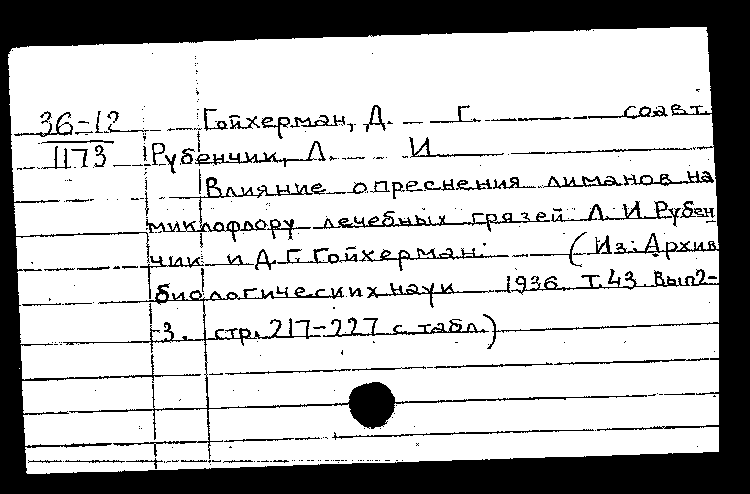 36-12 Гойхерман, Д. Г. соавт.
1173 Рубенчик, Л. И
Влияние опреснения лиманов на
микрофлору лечебных грязей Л. И. Рубен
чик и Д. Г. Гойхерман. (Из: Архив
биологических наук 1936. Т. 43. Вып 2-
-3. стр. 217-227 с табл.)